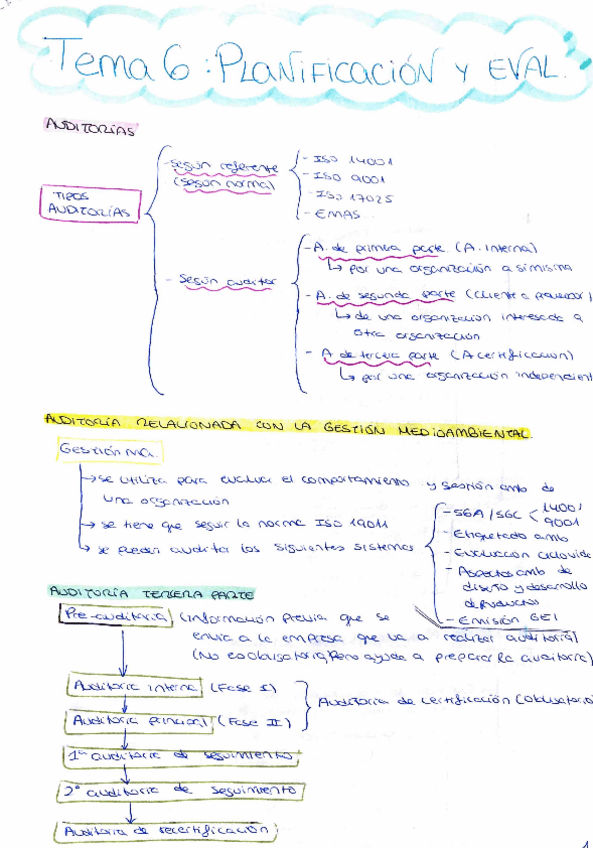 Tema 6: PLANIFICACIÓN Y EVAL.
AUDITORÍAS
TIPOS
AUDITORÍAS
- según referente
(según norma)
- ISO 14001
- ISO 9001
- ISO 17025
- EMAS...
- Según auditor
- A. de primera parte (A. interna)
↳ por una organización a sí misma
- A. de segunda parte (cliente a proveedor)
↳ de una organización interesada a
otra organización
- A de tercera parte (A certificación)
↳ por una organización independient
AUDITORÍA RELACIONADA CON LA GESTIÓN MEDIOAMBIENTAL.
GESTIÓN MA.
→ se utiliza para evaluar el comportamiento y gestión amb de
una organización
→ se tiene que seguir la norma ISO 19011
→ se pueden auditar los siguientes sistemas
- SGA / SGC < 14001
9001
- Etiquetado amb
- Evaluación ciclo vida
- Aspectos amb de
diseño y desarrollo
de productos
- Emisión GEI
AUDITORÍA TERCERA PARTE
Pre-auditoría (información previa que se
envía a la empresa que va a realizar auditoría)
(No es obligatoria, pero ayuda a preparar la auditoría)
Auditoría interna (Fase I)
Auditoría principal (Fase II)
Auditoría de certificación (obligatorio)
1ª auditoría de seguimiento
2º auditoría de seguimiento
Auditoría de recertificación
1